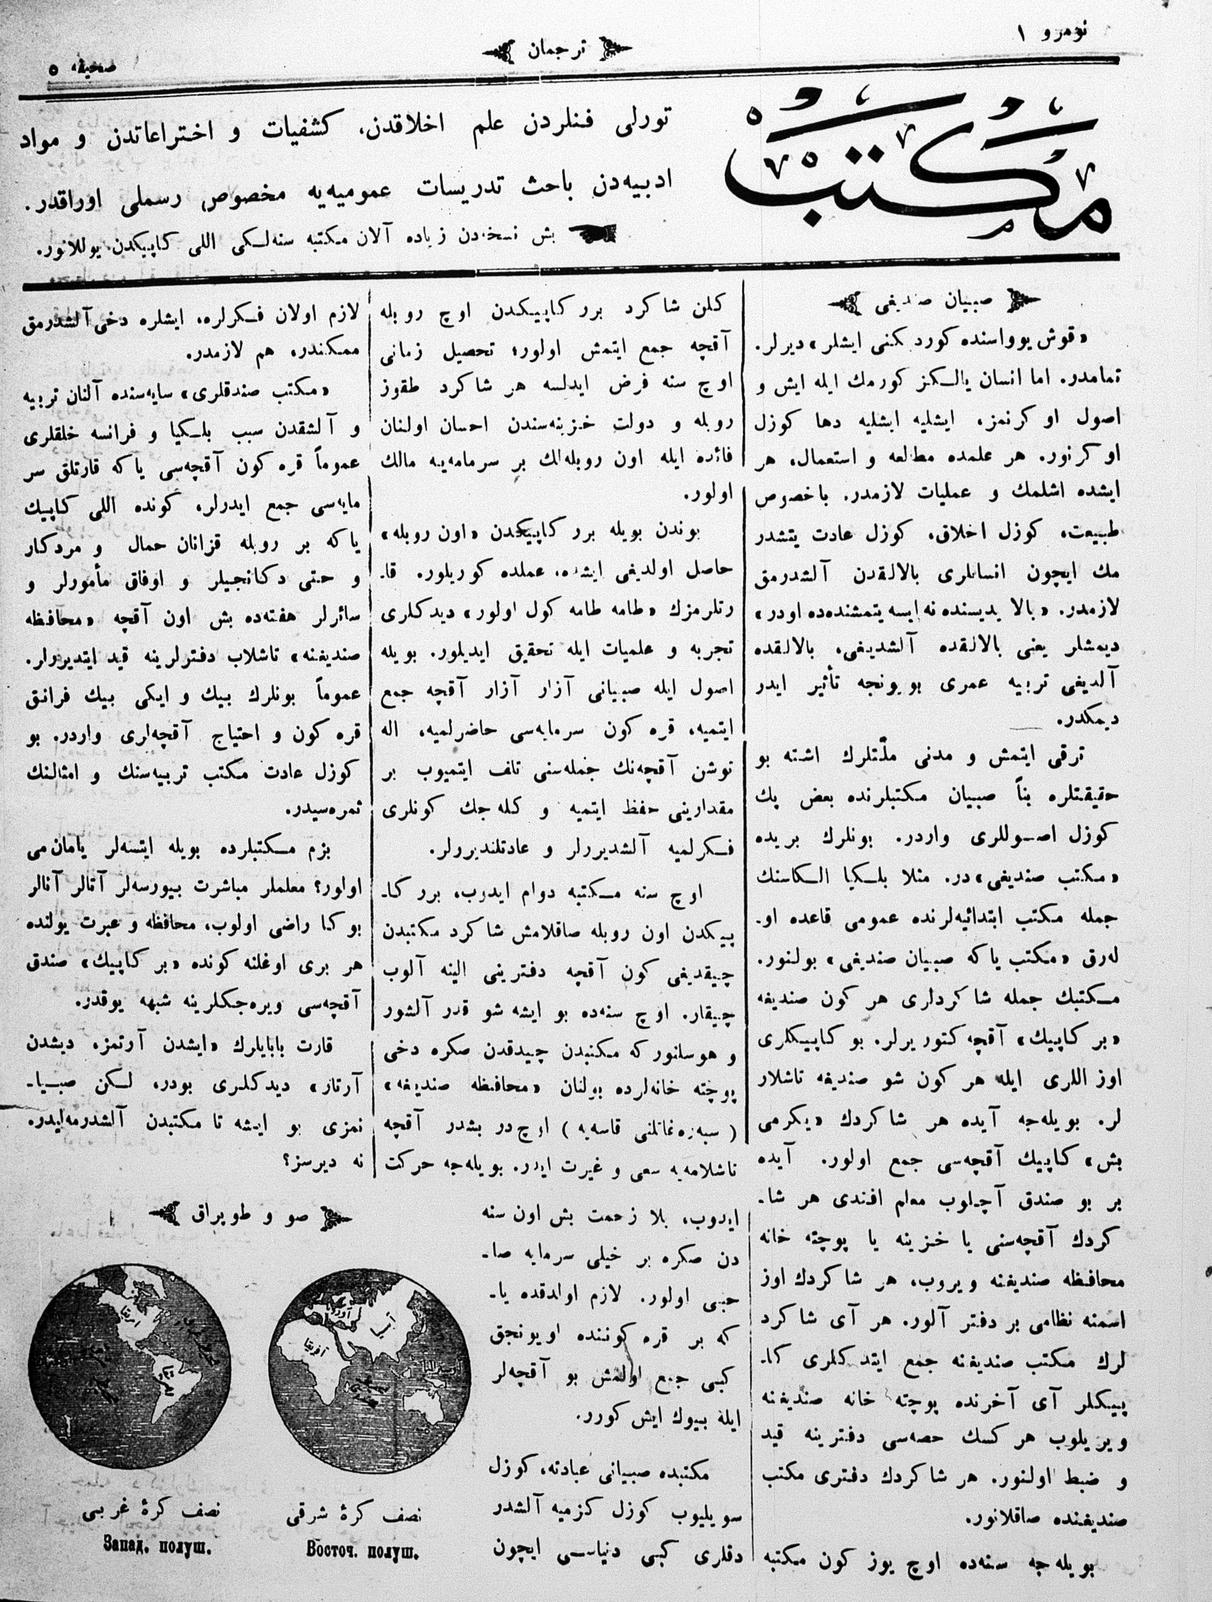 نومرو ١
ترجمان
صحیفه ٥
مكتب
تورلی فنلردن علم اخلاقدن، كشفیات و اختراعاتدن و مواد
ادبیه‌دن باحث تدریسات عمومیه‌یه مخصوص رسملی اوراقدر.
بش نسخه‌دن زیاده آلان مكتبه سنه‌لكی اللی كاپیكدن یوللانور.
صبیان صندیغی
«قوش یوواسنده كوردیكنی ایشلر» دیرلر.
تمامدر. اما انسان یالكز كورمك ایله ایش و
اصول اوكرنمز، ایشلیه ایشلیه دها كوزل
اوكرنور. هر علمده مطالعه و استعمال، هر
ایشده اشلمك و عملیات لازمدر. باخصوص
طبیعت، كوزل اخلاق، كوزل عادت یتشدر
مك ایچون انسانلری بالالقدن آلشدرمق
لازمدر. «بالا یدیسنده نه ایسه یتمشنده‌ده اودر»
دیمشلر یعنی بالالقده آلشدیغی، بالالقده
آلدیغی تربیه عمری بویونجه تأثیر ایدر
دیمكدر.
ترقی ایتمش و مدنی ملّتلرك اشته بو
حقیقتلره بناً صبیان مكتبلرنده بعض پك
كوزل اصوللری واردر. بونلرك بریده
«مكتب صندیغی»در. مثلا بلكیا الكاسنك
جمله مكتب ابتدائیه‌لرنده عمومی قاعده او-
له‌رق «مكتب یاكه صبیان صندیغی» بولنور.
مكتبك جمله شاكردلری هر كون صندیغه
«بر كاپیك» آقچه كتوریرلر. بو كاپیكلری
اوز اللری ایله هر كون شو صندیغه تاشلار
لر. بویله‌جه آیده هر شاكردك «یكرمی
بش» كاپیك آقچه‌سی جمع اولور. آیده
بر بو صندق آچلوب معلم افندی هر شا-
كردك آقچه‌سنی یا خزینه یا پوچته خانه
محافظه صندیغنه ویروب، هر شاكردك اوز
اسمنه نظامی بر دفتر آلور. هر آی شاكرد
لرك مكتب صندیغنه جمع ایتدكلری كا-
پیكلر آی آخرنده پوچته خانه صندیغنه
ویریلوب هر كسك حصه‌سی دفترینه قید
و ضبط اولنور. هر شاكردك دفتری مكتب
صندیغنده صاقلانور.
بویله‌جه سنه‌ده اوچ یوز كون مكتبه
كلن شاكرد برر كاپیكدن اوچ روبله
آقچه جمع ایتمش اولور؛ تحصیل زمانی
اوچ سنه فرض ایدلسه هر شاكرد طقوز
روبله و دولت خزینه‌سندن احسان اولنان
فائده ایله اون روبله‌لك بر سرمایه‌یه مالك
اولور.
بوندن بویله برر كاپیكدن «اون روبله»
حاصل اولدیغی ایشده، عملده كوریلور. قا-
رتلرمزك «طامه طامه كول اولور» دیدكلری
تجربه و علمیات ایله تحقیق ایدیلور. بویله
اصول ایله صبیانی آزار آزار آقچه جمع
ایتمیه، قره كون سرمایه‌سی حاضرلمیه، اله
توشن آقچه‌نك جمله‌سنی تلف ایتمیوب بر
مقدارینی حفظ ایتمیه و كله‌جك كونلری
فكرلمیه آلشدیررلر و عادتلندیررلر.
اوچ سنه مكتبه دوام ایدوب، برر كا-
پیكدن اون روبله صاقلامش شاكرد مكتبدن
چیقدیغی كون آقچه دفترینی الینه آلوب
چیقار. اوچ سنه‌ده بو ایشه شو قدر آلشور
و هوسلنور كه مكتبدن چیدقدن صكره دخی
پوچته خانه‌لرده بولنان «محافظه صندیغه»
ناشلامه‌یه سعی و غیرت ایدر. بویله‌جه حركت
ایدوب، بلا زحمت بش اون سنه
دن صكره بر خیلی سرمایه صا-
حبی اولور. لازم اولدقده یا-
كه بر قره كوننده اویونجق
كبی جمع اولنمش بو آقچه‌لر
ایله بیوك ایش كورر.
مكتبده صبیانی عبادته، كوزل
سویلیوب كوزل كزمیه آلشدر
دقلری كبی دنیاسی ایچون
لازم اولان فكرلره، ایشلره دخی آلشدرمق
ممكندر، هم لازمدر.
«مكتب صندقلری» سایه‌سنده آلنان تربیه
و آلشقدن سبب بلكیا و فرانسه خلقلری
عموماً قره كون آقچه‌سی یاكه قارتلق سر
مایه‌سی جمع ایدرلر. كونده اللی كاپیك
یاكه بر روبله قزانان حمال و مردكار
و حتی دكانجیلر و اوفاق مأمورلر و
سائرلر هفته‌ده بش اون آقچه «محافظه
صندیغنه» تاشلاب دفترلرینه قید ایتدیررلر.
عموماً بونلرك بیك و ایكی بیك فرانق
قره كون و احتیاج آقچه‌لری واردر. بو
كوزل عادت مكتب تربیه‌سنك و امثالنك
ثمره‌سیدر.
بزم مكتبلرده بویله ایتسه‌لر یامان‌می
اولور؟ معلملر مباشرت بیورسه‌لر آتالر آنالر
بوكا راضی اولوب، محافظه و عبرت یولنده
هر بری اوغلنه كونده «بر كاپیك» صندق
آقچه‌سی ویره‌جكلرینه شبهه یوقدر.
قارت بابایلرك «ایشدن آرتمز، دیشدن
آرتار» دیدكلری بودر، لكن صبیا-
نمزی بو ایشه تا مكتبدن آلشدرمه‌لیدر.
نه دیرسز؟
صو و طوپراق
آوروپا
آسیا
آفریقا
نصف كرۀ شرقی
Восточ. полуш.
نصف كرۀ غربی
Запад. полуш.